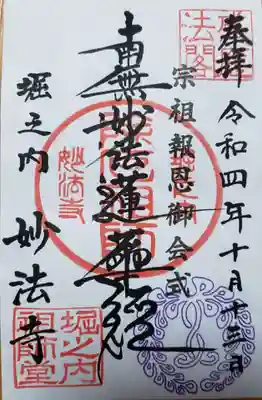 奉拝
令和四年十月十三日
宗祖報恩御会式
南無妙法蓮華経
堀之内 妙法寺
妙法寺
堀之内
祖師堂